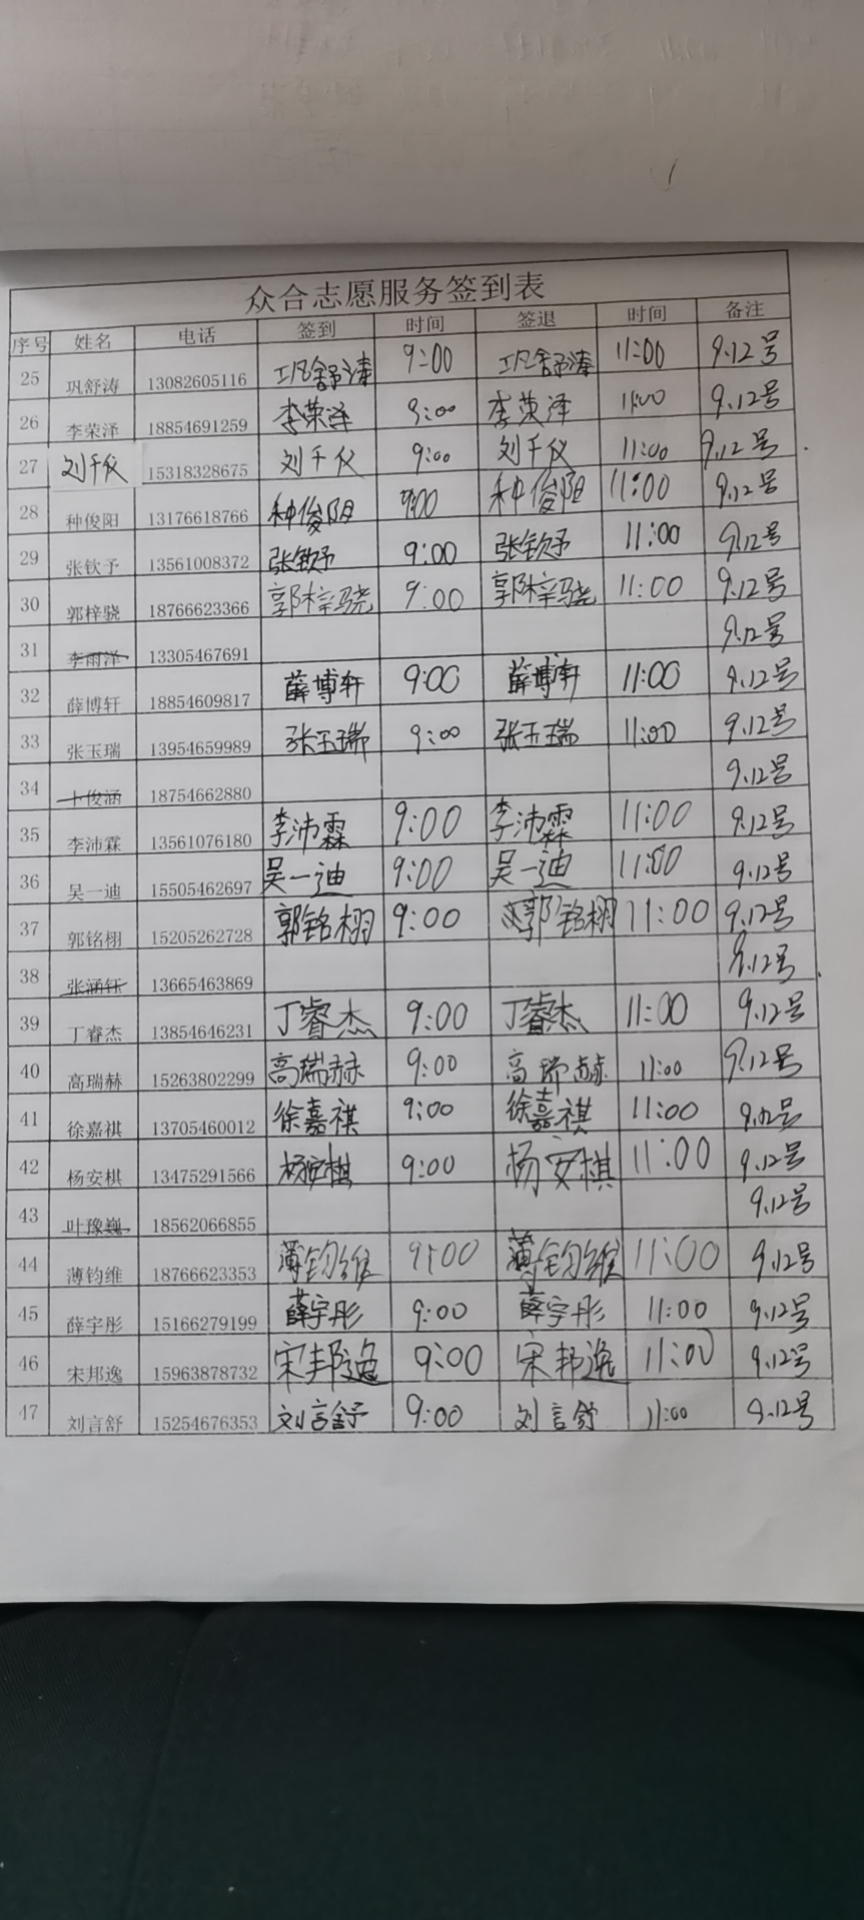 众合志愿服务签到表
序号 姓名 电话 签到 时间 签退 时间 备注
25 巩舒涛 13082605116 巩舒涛 9:00 巩舒涛 11:00 9.12号
26 李荣泽 18854691259 李荣泽 9:00 李荣泽 11:00 9.12号
27 刘千仪 15318328675 刘千仪 9:00 刘千仪 11:00 9.12号
28 种俊阳 13176618766 种俊阳 9:00 种俊阳 11:00 9.12号
29 张钦予 13561008372 张钦予 9:00 张钦予 11:00 9.12号
30 郭梓骁 18766623366 郭梓骁 9:00 郭梓骁 11:00 9.12号
31 李雨泽 13305467691 9.12号
32 薛博轩 18854609817 薛博轩 9:00 薛博轩 11:00 9.12号
33 张玉瑞 13954659989 张玉瑞 9:00 张玉瑞 11:00 9.12号
34 卜俊涵 18754662880 9.12号
35 李沛霖 13561076180 李沛霖 9:00 李沛霖 11:00 9.12号
36 吴一迪 15505462697 吴一迪 9:00 吴一迪 11:00 9.12号
37 郭铭栩 15205262728 郭铭栩 9:00 郭铭栩 11:00 9.12号
38 张涵钰 13665463869 9.12号
39 丁睿杰 13854646231 丁睿杰 9:00 丁睿杰 11:00 9.12号
40 高瑞赫 15263802299 高瑞赫 9:00 高瑞赫 11:00 9.12号
41 徐嘉祺 13705460012 徐嘉祺 9:00 徐嘉祺 11:00 9.12号
42 杨安棋 13475291566 杨安棋 9:00 杨安棋 11:00 9.12号
43 叶豫巍 18562066855 9.12号
44 薄钧维 18766623353 薄钧维 9:00 薄钧维 11:00 9.12号
45 薛宇彤 15166279199 薛宇彤 9:00 薛宇彤 11:00 9.12号
46 宋邦逸 15963878732 宋邦逸 9:00 宋邦逸 11:00 9.12号
47 刘言舒 15254676353 刘言舒 9:00 刘言舒 11:00 9.12号